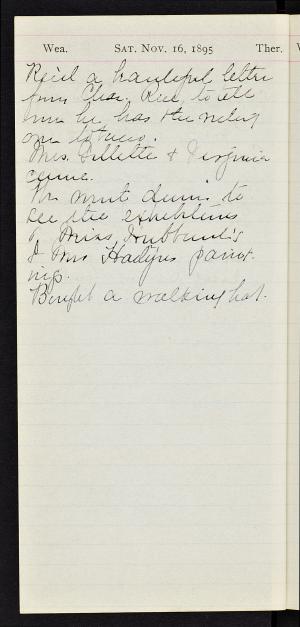 Wea. SAT. NOV. 16, 1895 Ther.
Rec'd a beautiful letter
from Chas. Rice, to tell
me he has the
Mrs. Gillette & Virginia
came.
We went down to
see the exhibitions
of Miss Hubbard's
& Mrs paint-
ings.
Bought a walking hat.